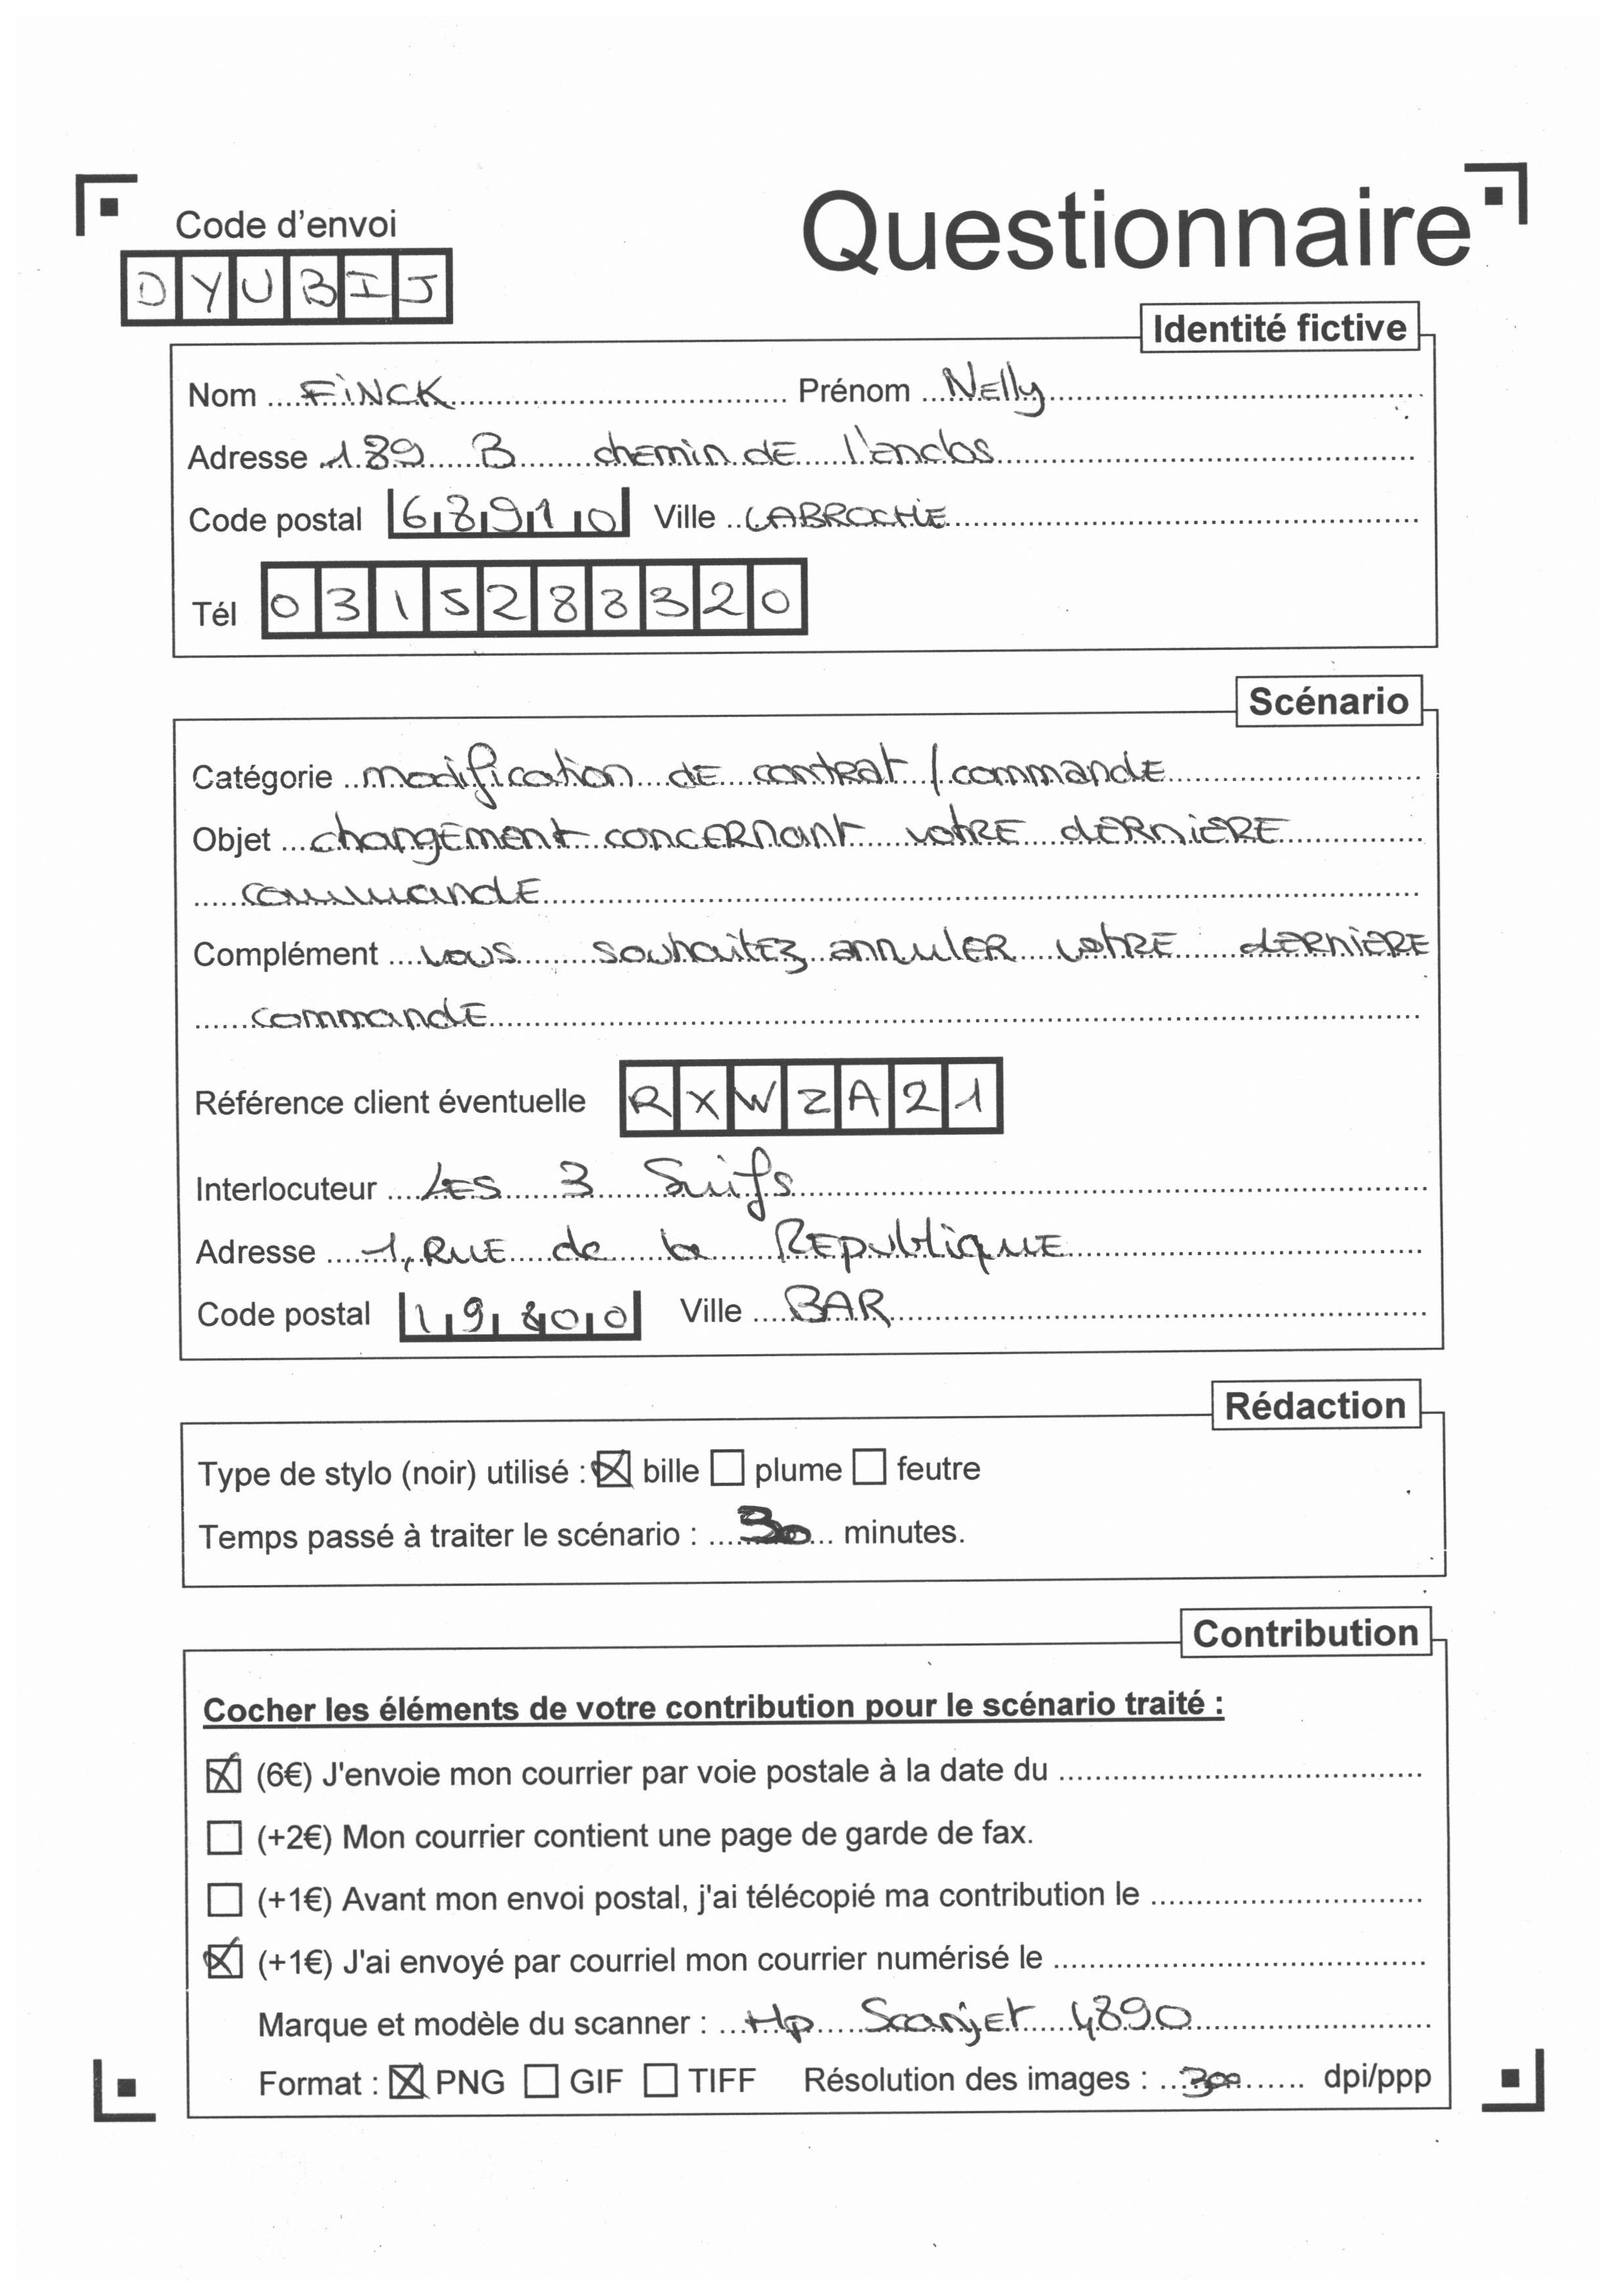 Questionnaire
Code d'envoi
DYUBIJ
Identité fictive
Nom FINCK Prénom Nelly
Adresse 189 B chemin de l'enclos
Code postal 68910 Ville LABROCHE
Tél 0315288320
Scénario
Catégorie modification de contrat / commande
Objet changement concernant votre dernière
commande
Complément vous souhaitez annuler votre dernière
commande
Référence client éventuelle RXWZA21
Interlocuteur Les 3 Suifs
Adresse 1, Rue de la Republique
Code postal 19800 Ville BAR
Rédaction
Type de stylo (noir) utilisé : ☒ bille ☐ plume ☐ feutre
Temps passé à traiter le scénario : 30 minutes.
Contribution
Cocher les éléments de votre contribution pour le scénario traité :
☒ (6€) J'envoie mon courrier par voie postale à la date du
☐ (+2€) Mon courrier contient une page de garde de fax.
☐ (+1€) Avant mon envoi postal, j'ai télécopié ma contribution le
☒ (+1€) J'ai envoyé par courriel mon courrier numérisé le
Marque et modèle du scanner : Hp Scanjet 4890
Format : ☒ PNG ☐ GIF ☐ TIFF Résolution des images : 300 dpi/ppp